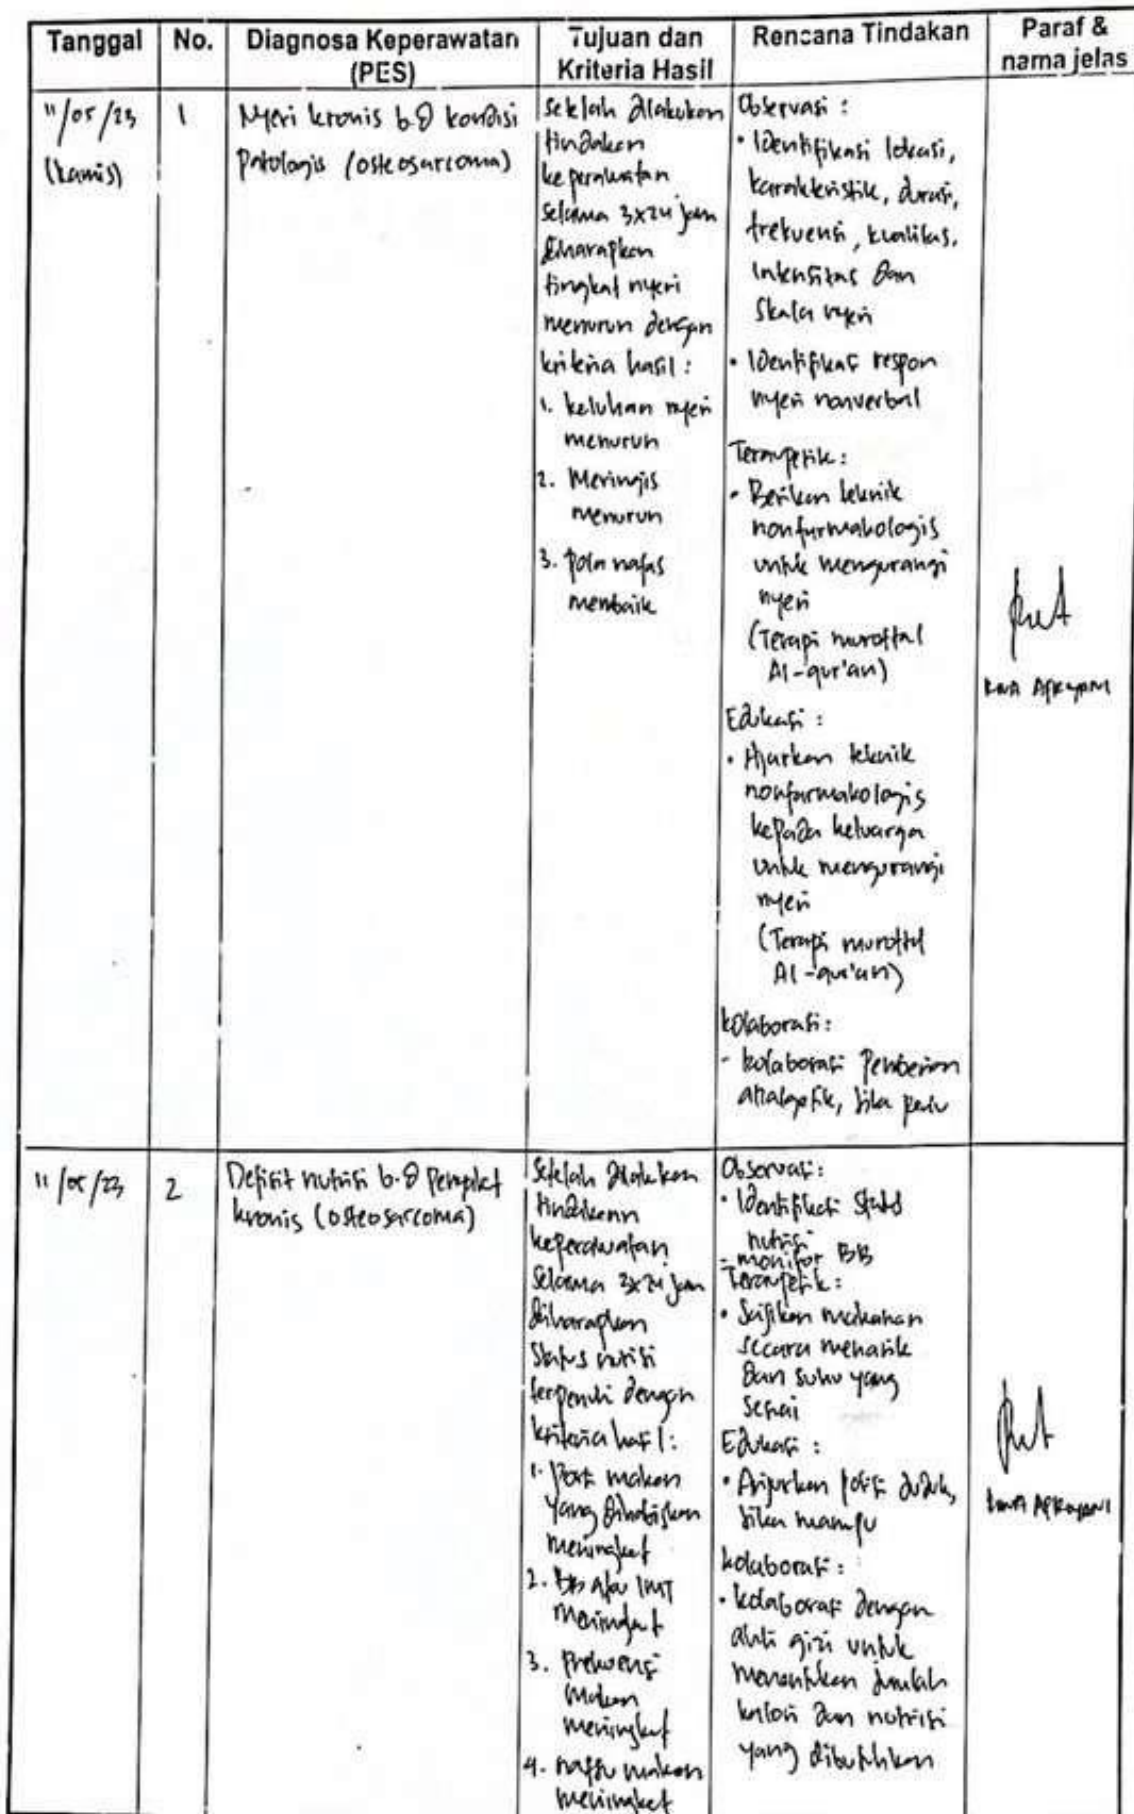 Tanggal
No.
Diagnosa Keperawatan
(PES)
Tujuan dan
Kriteria Hasil
Rencana Tindakan
Paraf &
nama jelas
11/05/23
(kamis)
1
Nyeri kronis b.d kondisi
patologis (osteosarcoma)
Setelah dilakukan
tindakan
keperawatan
selama 3x24 jam
diharapkan
tingkat nyeri
menurun dengan
kriteria hasil :
1. keluhan nyeri
menurun
2. Meringis
menurun
3. pola nafas
membaik
Observasi :
• Identifikasi lokasi,
karakteristik, durasi,
frekuensi, kualitas,
intensitas dan
skala nyeri
• Identifikasi respon
nyeri nonverbal
Terapetik :
• Berikan teknik
nonfarmakologis
untuk mengurangi
nyeri
(Terapi murottal
Al-qur'an)
Edukasi :
• Ajarkan teknik
nonfarmakologis
kepada keluarga
untuk mengurangi
nyeri
(Terapi murottal
Al-qur'an)
kolaborasi :
- kolaborasi pemberian
analgetik, jika perlu
11/05/23
2
Defisit nutrisi b.d penyakit
kronis (osteosarcoma)
Setelah dilakukan
tindakann
keperawatan
selama 3x24 jam
diharapkan
status nutrisi
terpenuhi dengan
kriteria hasil :
1. Porsi makan
yang dihabiskan
meningkat
2. BB atau IMT
meningkat
3. Frekuensi
makan
meningkat
4. nafsu makan
meningkat
Observasi :
• Identifikasi status
nutrisi
- monitor BB
Terapetik :
• Sajikan makanan
secara menarik
dan suhu yang
sesuai
Edukasi :
• Anjurkan posisi duduk,
jika mampu
kolaborasi :
• kolaborasi dengan
ahli gizi untuk
menentukan jumlah
kalori dan nutrisi
yang dibutuhkan